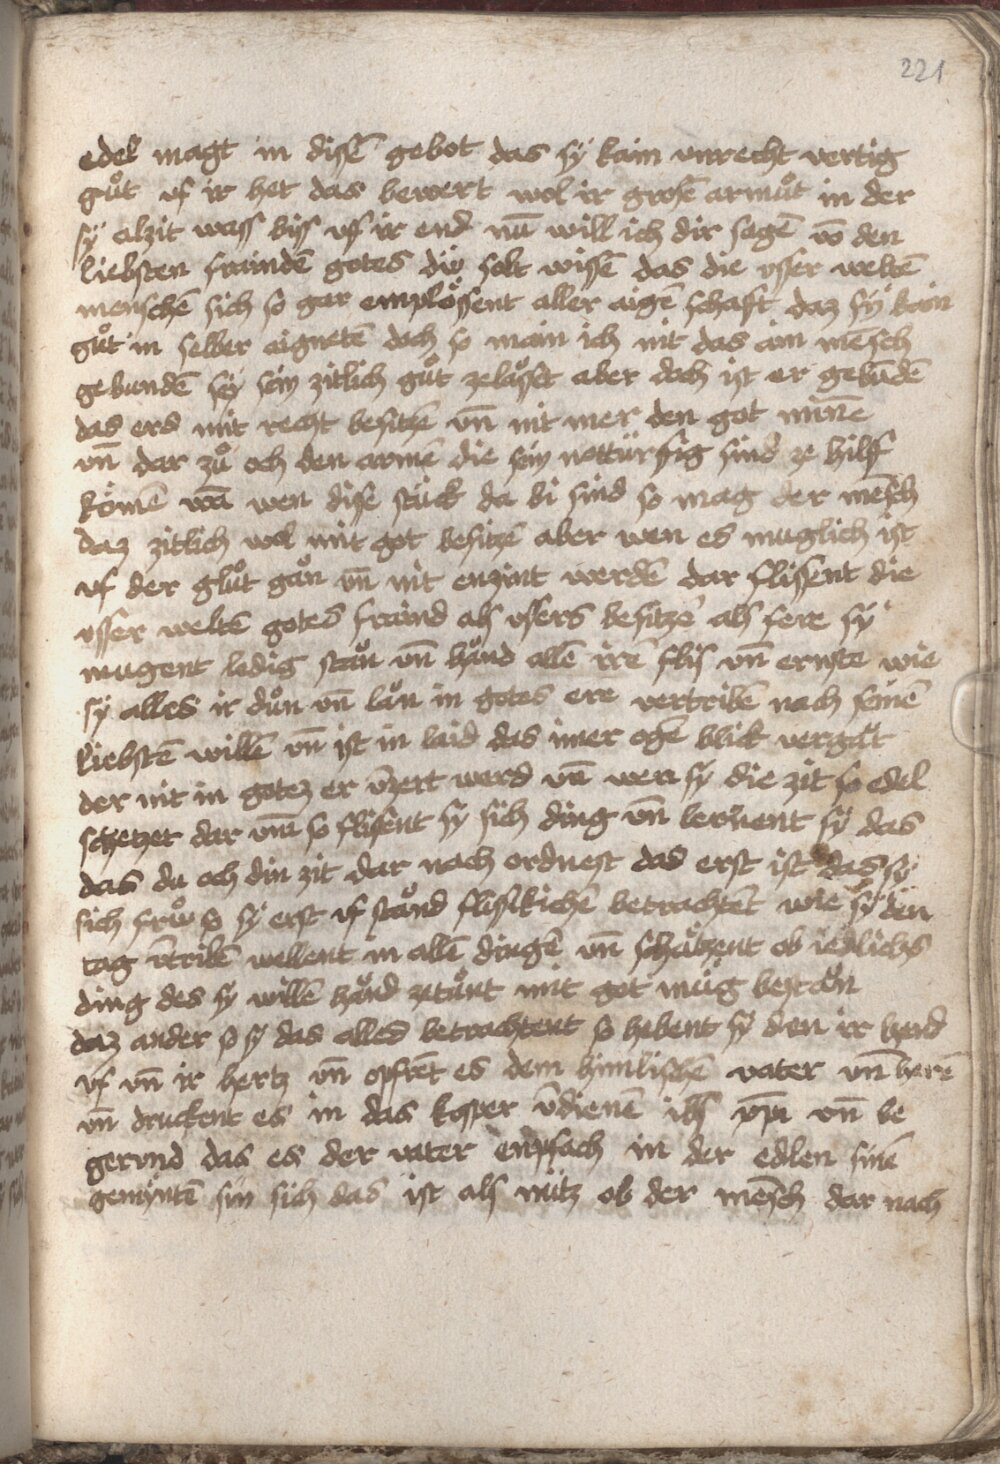 221
edel magt in disē gebot das sy kain vnrecht vertig
guͦt vf ir het das bewert wol ir grosē armuͦt in der
sy alzit wass biss vf ir end nū will ich dir sagē vō den
liebsten fraindē gotes die solt wissē das die vsser weltē
menschē sich so gar emploͤssent aller aigē schaft daz sy kain
guͦt in selber aignetē doch so main ich nit das ain mēsch
gebundē sy sin zitlich guͦt zelaͧsset aber doch ist er gebūdē
das ers mit recht besitze vn̄ nit mer den got minne
vn̄ dar zuͦ och den armē die sin notturftig sind ze hilf
komē wā wen dise stuck da bi sind so mag der mēsch
daz zitlich wol mit got besitzē aber wen es muglich ist
vf der gluͦt gaͧn vn̄ nit enzint werdē dar flissent die
vsser weltē gotes fraind als vssers besitzē als fere sy
mugent ledig staͧn vn̄ haͧnd allē irē flis vn̄ ernste wie
sy alles ir duͦn vn̄ laͧn in gotes ere vertribē nach sinē
liebstē willē vn̄ ist in laid das imer ogē blick vergat
der nit in gotez er v̄zert werd vn̄ wen sy die zit so edel
schetzet dar vm̄ so flisent sy sich ding vn̄ lernent sy das
das du och din zit dar nach ordnest das erst ist das sy
sich fruͦ so sy erst vf staͧnd flislichē betrachtēt wie sy den
tag v̄tribē wellent in allē dingē vn̄ schaͤtzent ob iedlichs
ding des sy willē haͧnd zetuͦnt mit got mug bestaͧn
daz ander so sy das alles betrachtent so habent sy den ir hend
vf vn̄ ir hertz vn̄ opfrēt es dem himlischē vater vn̄ herē
vn̄ druckent es in das kosper v̄dienē ihs xp̄i vn̄ be
gerend das es der vater enpfach in der edlen sinē
gemintē sin sich das ist als nutz ob der mēsch dar nach